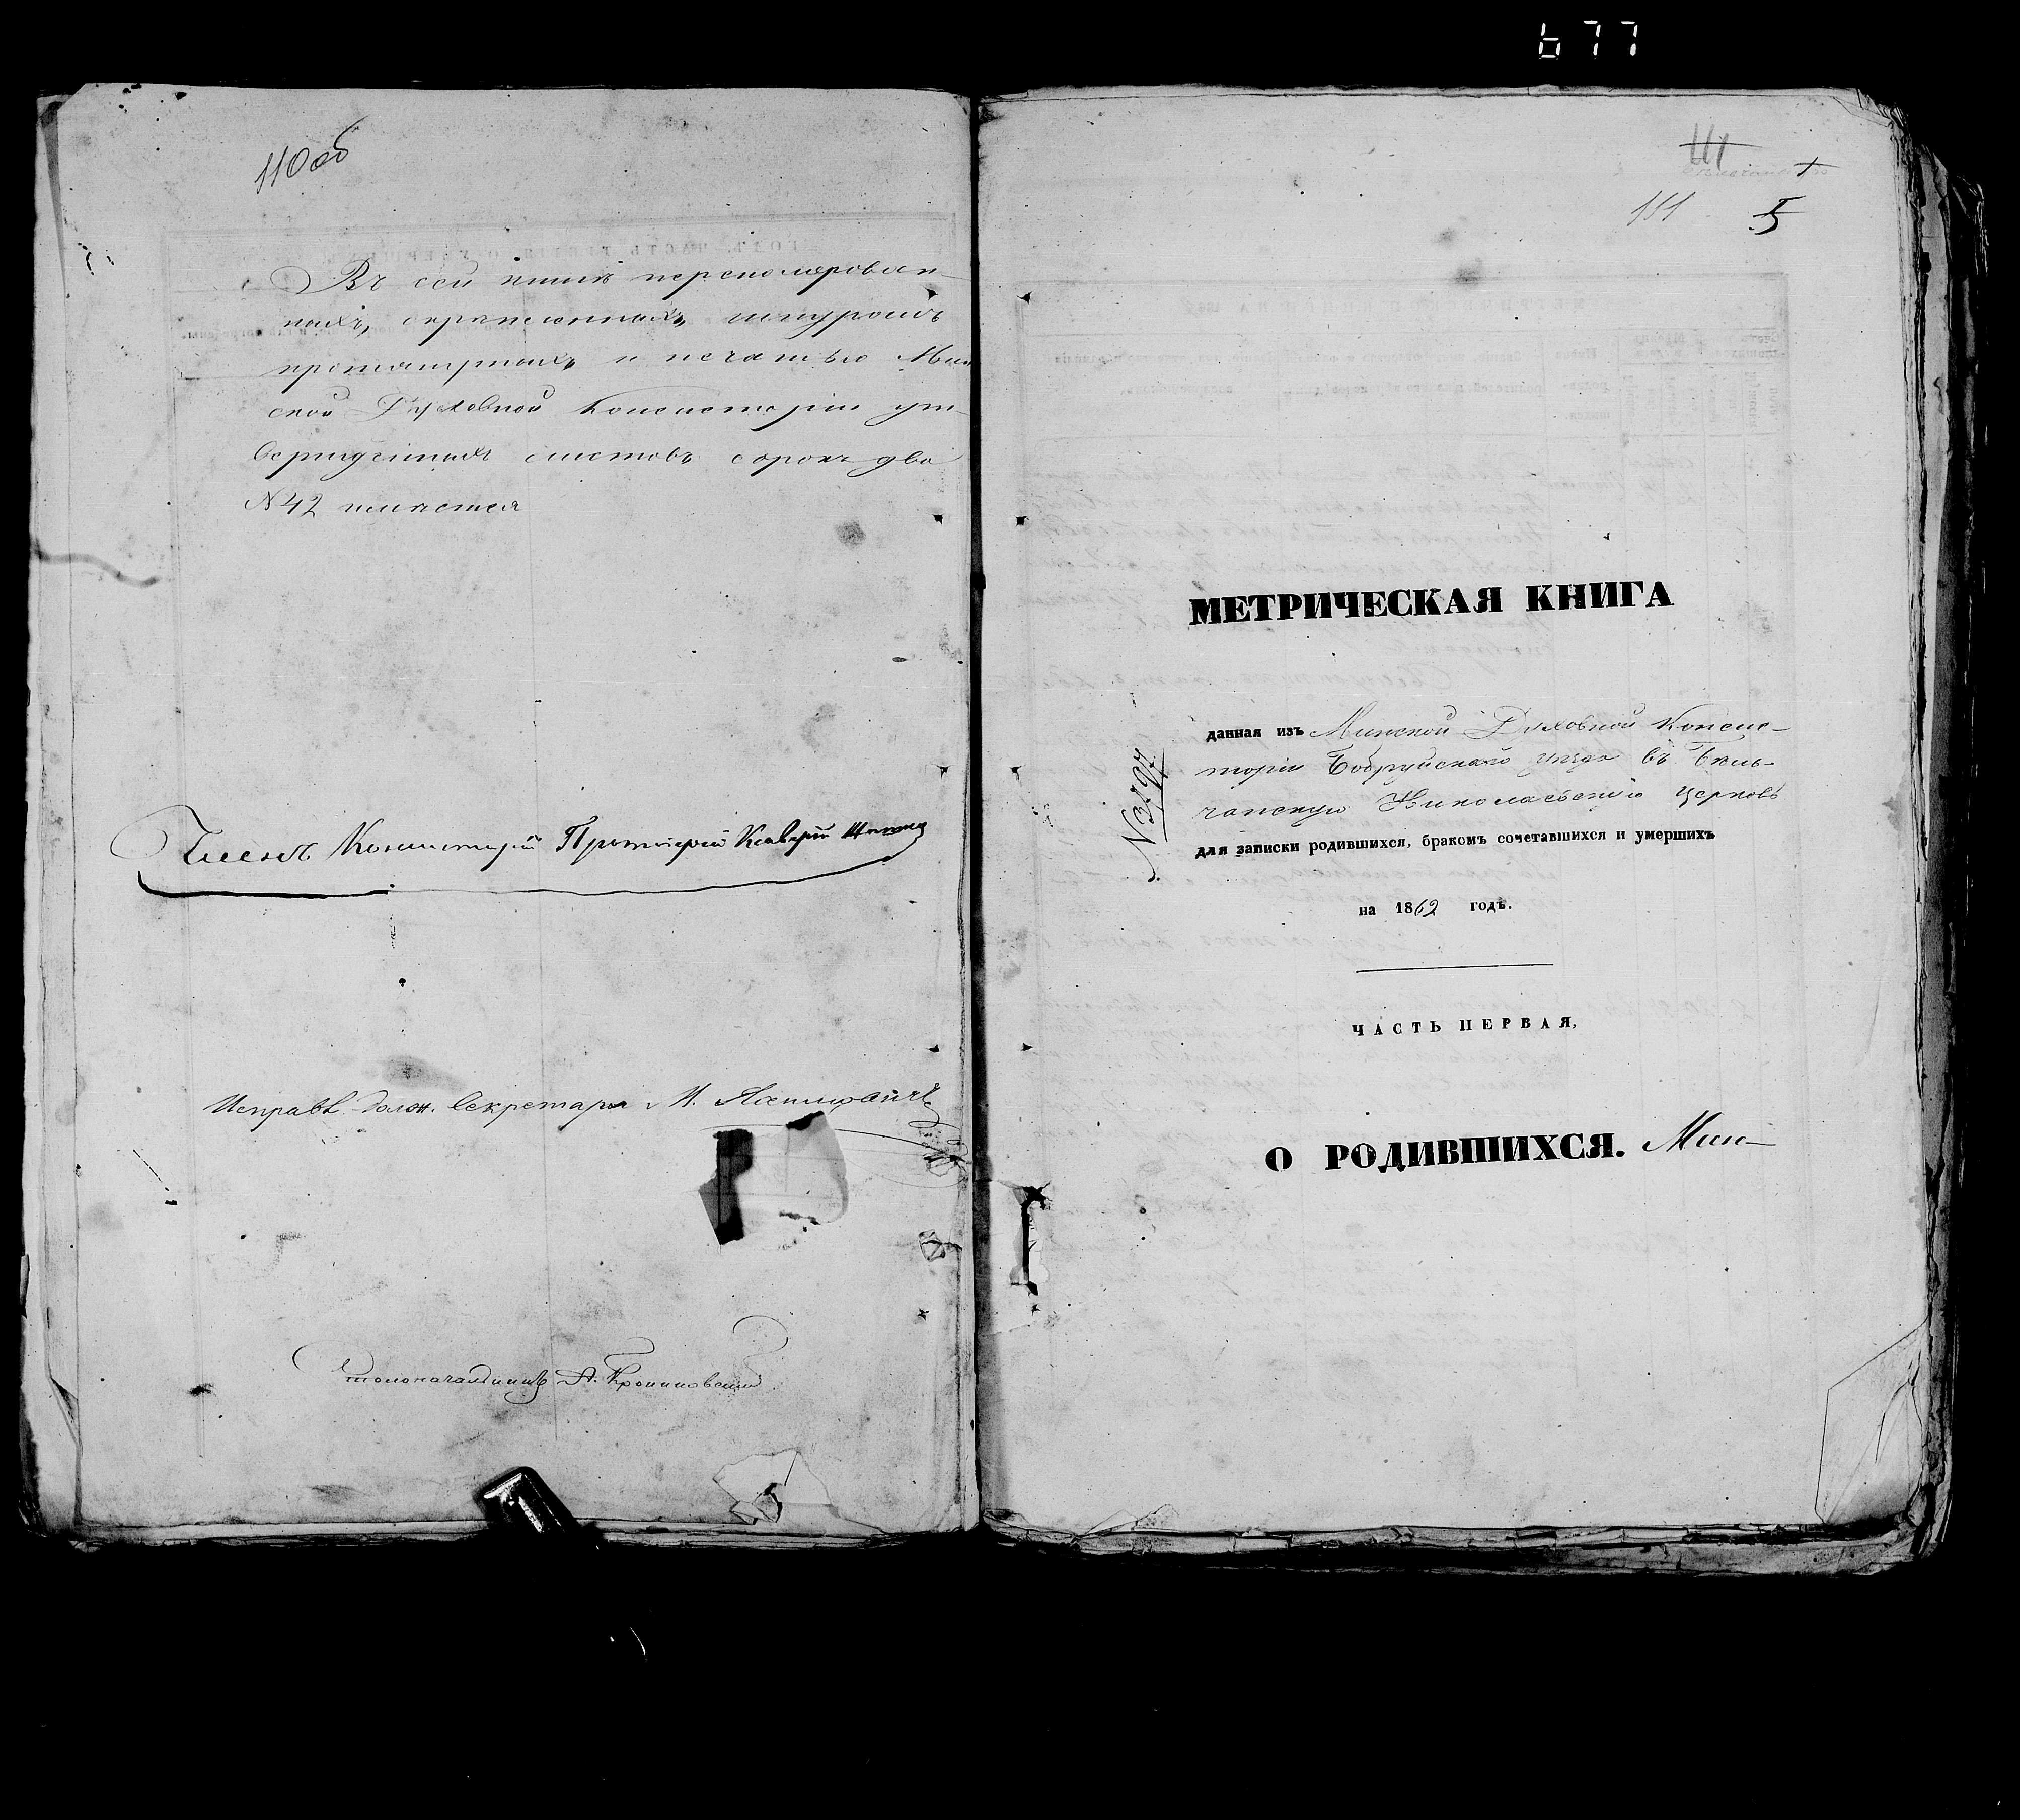 677
110 об
Въ сей книгѣ переномерован-
ныхъ, скрѣпленныхъ, шнуромъ
протянутыхъ и печатью Мин
ской Духовной Консисторіи ут-
вержденныхъ листовъ сорокъ два
N 42 имѣется
Членъ Консисторіи Протоіерей Ксаверій
Исправл. долж. Секретаря М.
Столоначальникъ А.
111
111 5
МЕТРИЧЕСКАЯ КНИГА
данная изъ Минской Духовной Консис-
торіи Бобруйскаго уѣзда въ Бѣль-
чанскую Николаевскую церковь
N 3897
для записки родившихся, бракомъ сочетавшихся и умершихъ
на 1862 годъ.
ЧАСТЬ ПЕРВАЯ,
О РОДИВШИХСЯ. Мин-